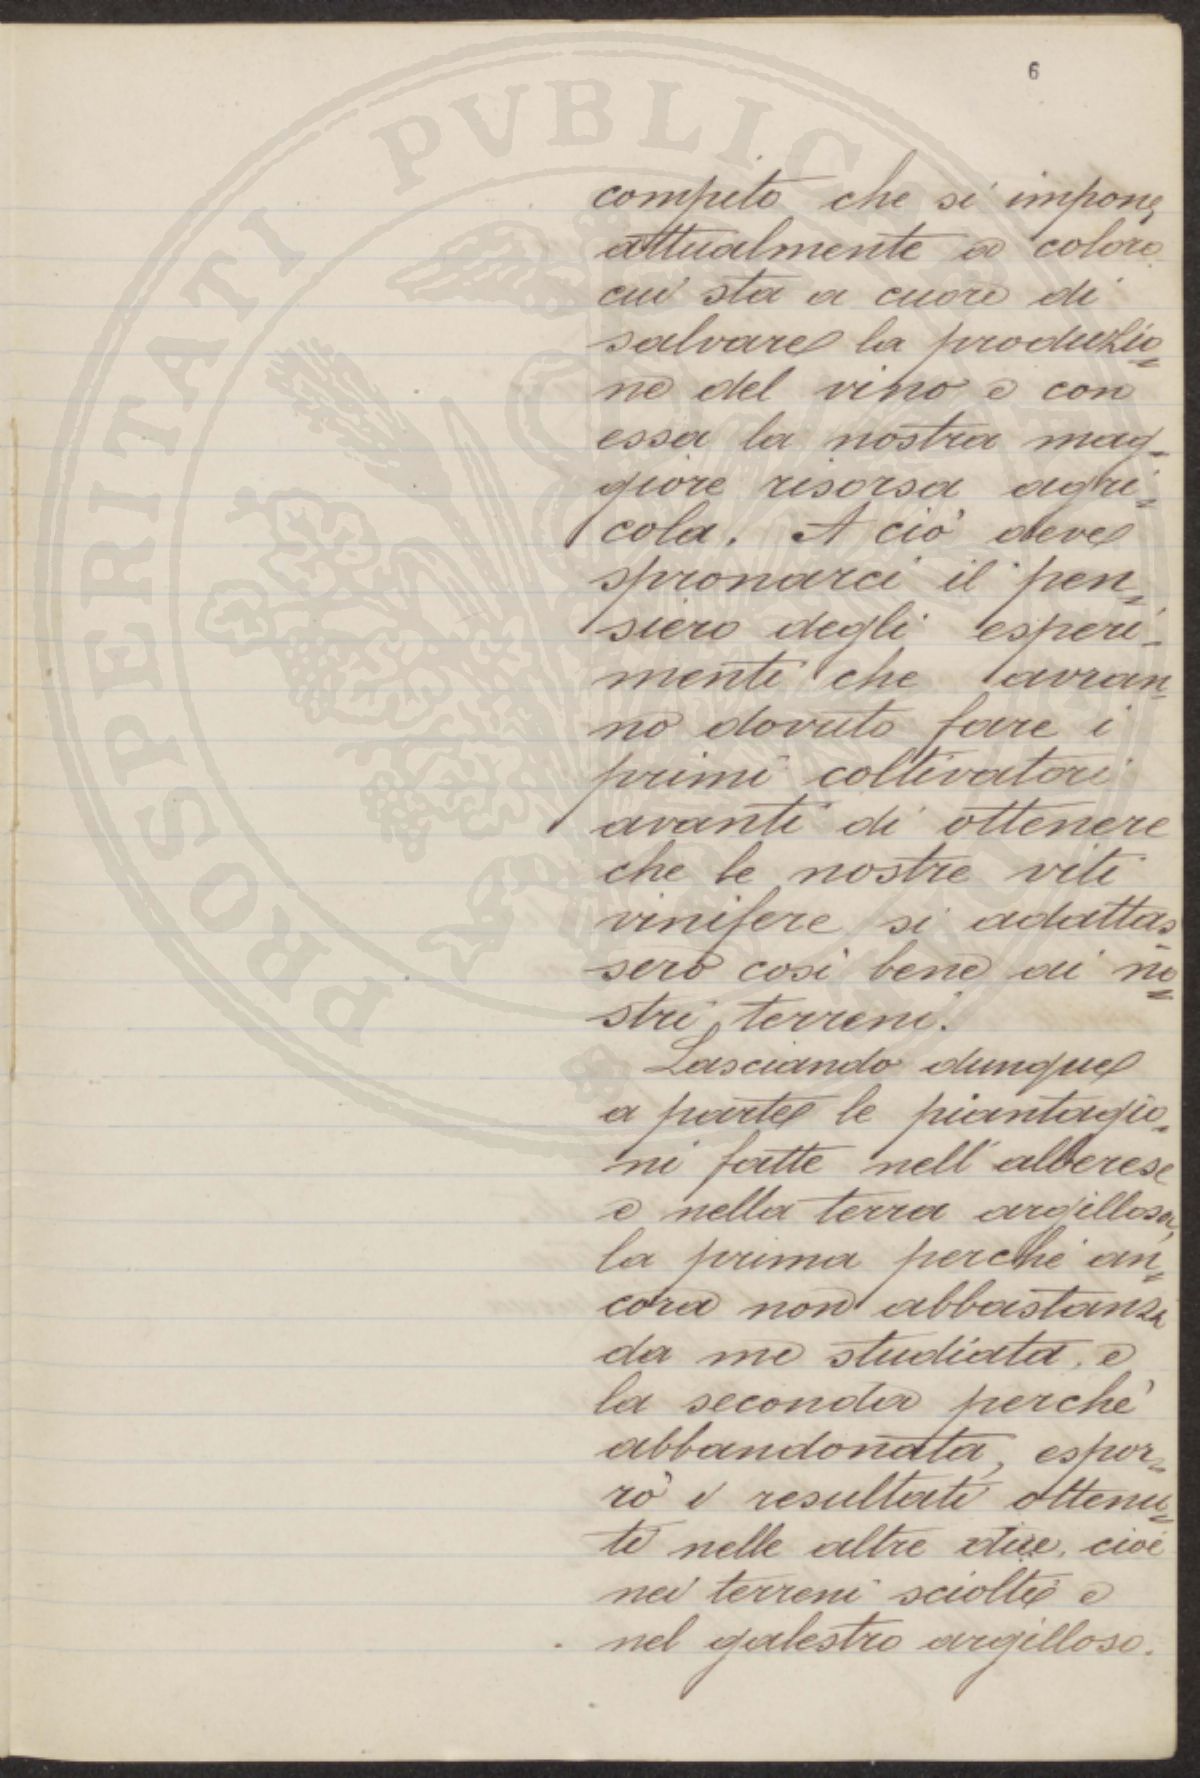 6
PROSPERITATI PVBLICAE
compito che si impone
attualmente a coloro
cui sta a cuore di
salvare la produzio=
ne del vino e con
essa la nostra mag=
giore risorsa agri=
cola. A ciò deve
spronarci il pen=
siero degli esperi=
menti che avran=
no dovuto fare i
primi coltivatori
avanti di ottenere
che le nostre viti
vinifere si adattas=
sero così bene ai no=
stri terreni.
Lasciando dunque
a parte le piantagio=
ni fatte nell'alberese
e nella terra argillosa,
la prima perchè an=
cora non abbastanza
da me studiata, e
la seconda perchè
abbandonata, espor=
rò i resultati ottenu=
ti nelle altre due, cioè
nei terreni sciolti e
nel galestro argilloso.